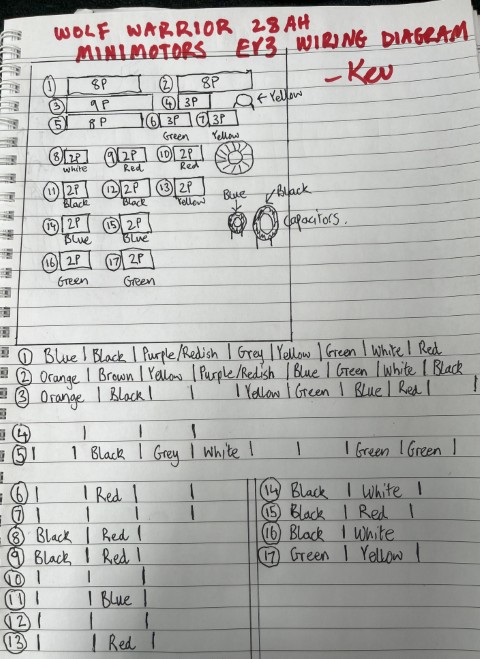 WOLF WARRIOR 28AH
MINIMOTORS EY3 WIRING DIAGRAM
- Kev
① 8P ② 8P
③ 9P ④ 3P ← Yellow
⑤ 8P ⑥ 3P ⑦ 3P
Green Yellow
⑧ 2P ⑨ 2P ⑩ 2P
White Red Red
⑪ 2P ⑫ 2P ⑬ 2P Blue Black
Black Black Yellow
⑭ 2P ⑮ 2P Capacitors.
Blue Blue
⑯ 2P ⑰ 2P
Green Green
① Blue | Black | Purple/Redish | Grey | Yellow | Green | White | Red
② Orange | Brown | Yellow | Purple/Redish | Blue | Green | White | Black
③ Orange | Black | | | Yellow | Green | Blue | Red | |
④ | | |
⑤ | | Black | Grey | White | | | Green | Green |
⑥ | | Red | |
⑦ | | | |
⑧ Black | Red |
⑨ Black | Red |
⑩ | | |
⑪ | | Blue |
⑫ | | |
⑬ | | Red |
⑭ Black | White |
⑮ Black | Red |
⑯ Black | White
⑰ Green | Yellow |